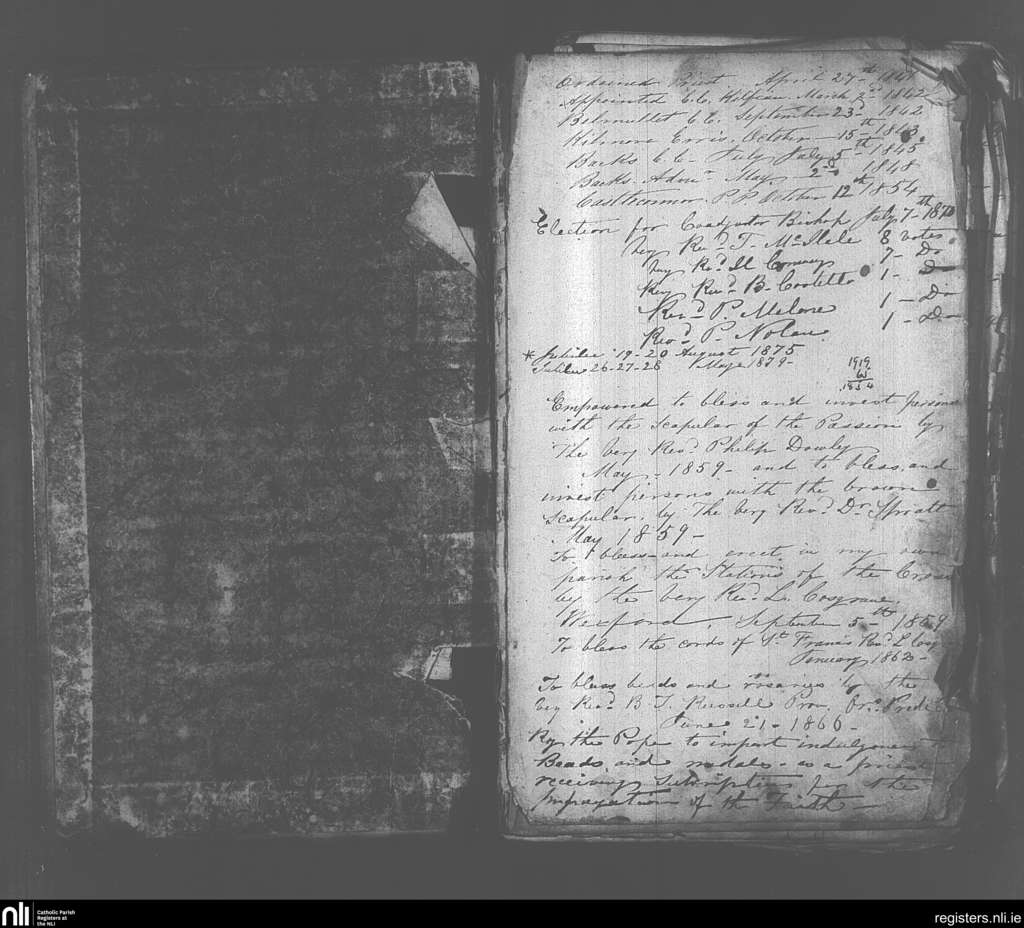 Ordained Priest April 27th 1841
Appointed C.C. Kilfian March 2d 1842
Belmullet C.C. September 23d 1842
Kilmore Erris October 15th 1843
Backs C.C. July July 5th 1845
Backs Admr May 2d 1848
Castleconnor P.P October 12th 1854
Election for Coadjutor Bishop July 7th 1870
Very Revd T. McHale 8 votes
Very Revd H Conway 7 - Do
Very Revd B. Costello 1 - Do
Revd P. Melone 1 - Do
Revd P. Nolan 1 - Do
* Jubilee 19-20 August 1875
Jubilee 26-27-28 May 1879-
1919
65
1854
Empowered to bless and invest persons
with the Scapular of the Passion by
The Very Revd Philip Dowley
May - 1859 - and to bless and
invest persons with the brown
Scapular by The Very Revd Dr Spratt
May 1859 -
To bless and erect in my own
parish the Stations of the Cross
by the Very Revd L. Cosgrave
Wexford, September 5th 1859
To bless the cords of St. Francis Revd L Cosg
January 1862 -
To bless beads and rosaries by the
Very Revd B T. Russell Prov. Or.
June 21 - 1866 -
By the Pope to impart indulgences
Beads and medals - as a priest
receiving subscriptions for the
Propagation of the Faith -
nli
Catholic Parish
Registers at
the NLI
registers.nli.ie